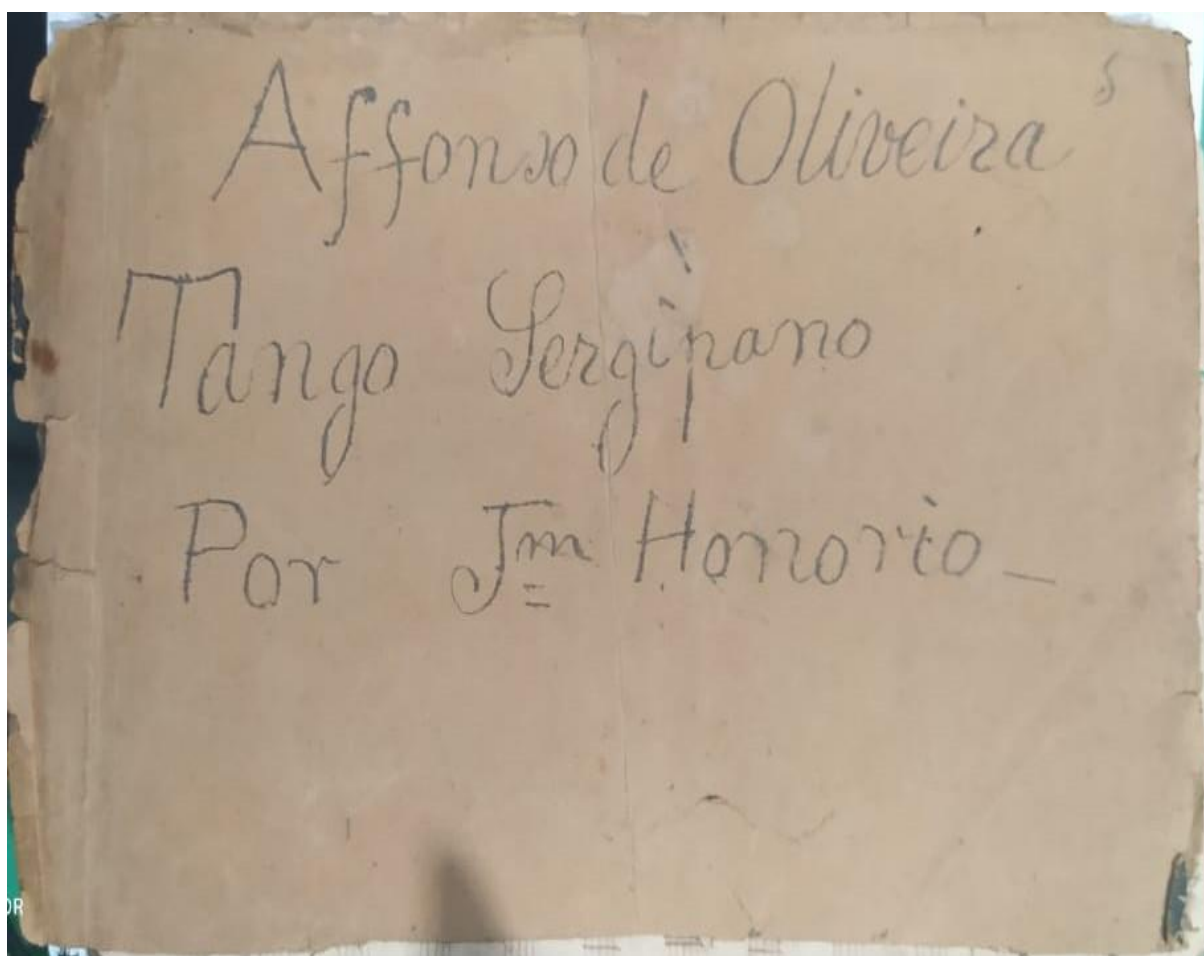 Affonso de Oliveira
Tango Sergipano
Por Jm Honorio